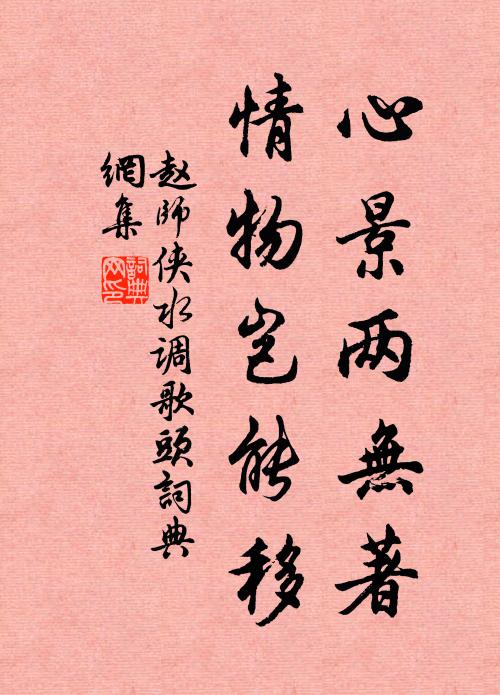 心景两無著
情物岂能移
赵師侠水调歌頭詞典
網集
詞典
网印